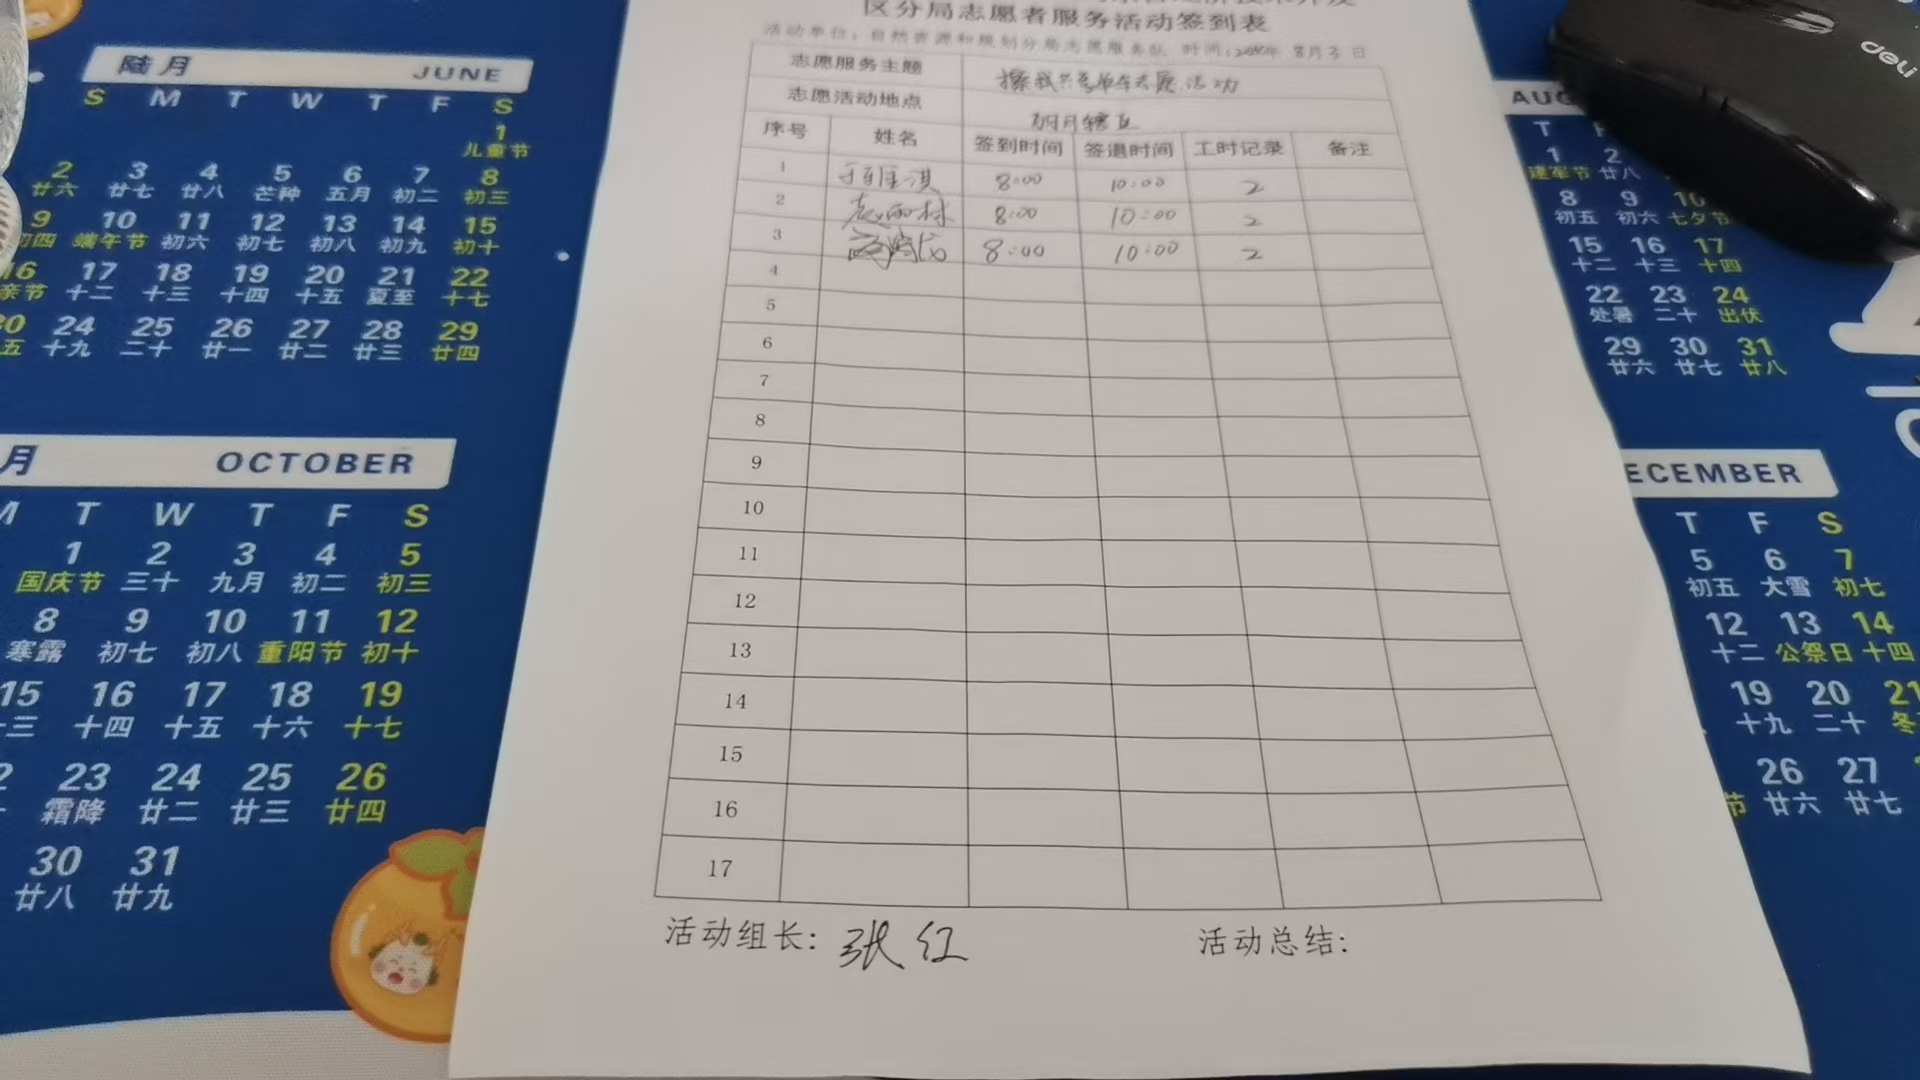 区分局志愿者服务活动签到表
活动单位：自然资源和规划分局志愿服务队 时间：2024年 8月3日
志愿服务主题
共享单车志愿活动
志愿活动地点
明月辖区
序号 姓名 签到时间 签退时间 工时记录 备注
1 8:00 10:00 2
2 8:00 10:00 2
3 8:00 10:00 2
4
5
6
7
8
9
10
11
12
13
14
15
16
17
活动组长：张红 活动总结：
陆月 JUNE
S M T W T F S
1
儿童节
2 3 4 5 6 7 8
廿六 廿七 廿八 芒种 五月 初二 初三
9 10 11 12 13 14 15
初四 端午节 初六 初七 初八 初九 初十
16 17 18 19 20 21 22
亲节 十二 十三 十四 十五 夏至 十七
30 24 25 26 27 28 29
五 十九 二十 廿一 廿二 廿三 廿四
月 OCTOBER
M T W T F S
1 2 3 4 5
国庆节 三十 九月 初二 初三
8 9 10 11 12
寒露 初七 初八 重阳节 初十
15 16 17 18 19
十三 十四 十五 十六 十七
23 24 25 26
霜降 廿二 廿三 廿四
30 31
廿八 廿九
deli
AUG
T
1 2
建军节 廿八
8 9 10
初五 初六 七夕节
15 16 17
十二 十三 十四
22 23 24
处暑 二十 出伏
29 30 31
廿六 廿七 廿八
ECEMBER
T F S
5 6 7
初五 大雪 初七
12 13 14
十二 公祭日 十四
19 20 21
十九 二十 冬
26 27
节 廿六 廿七